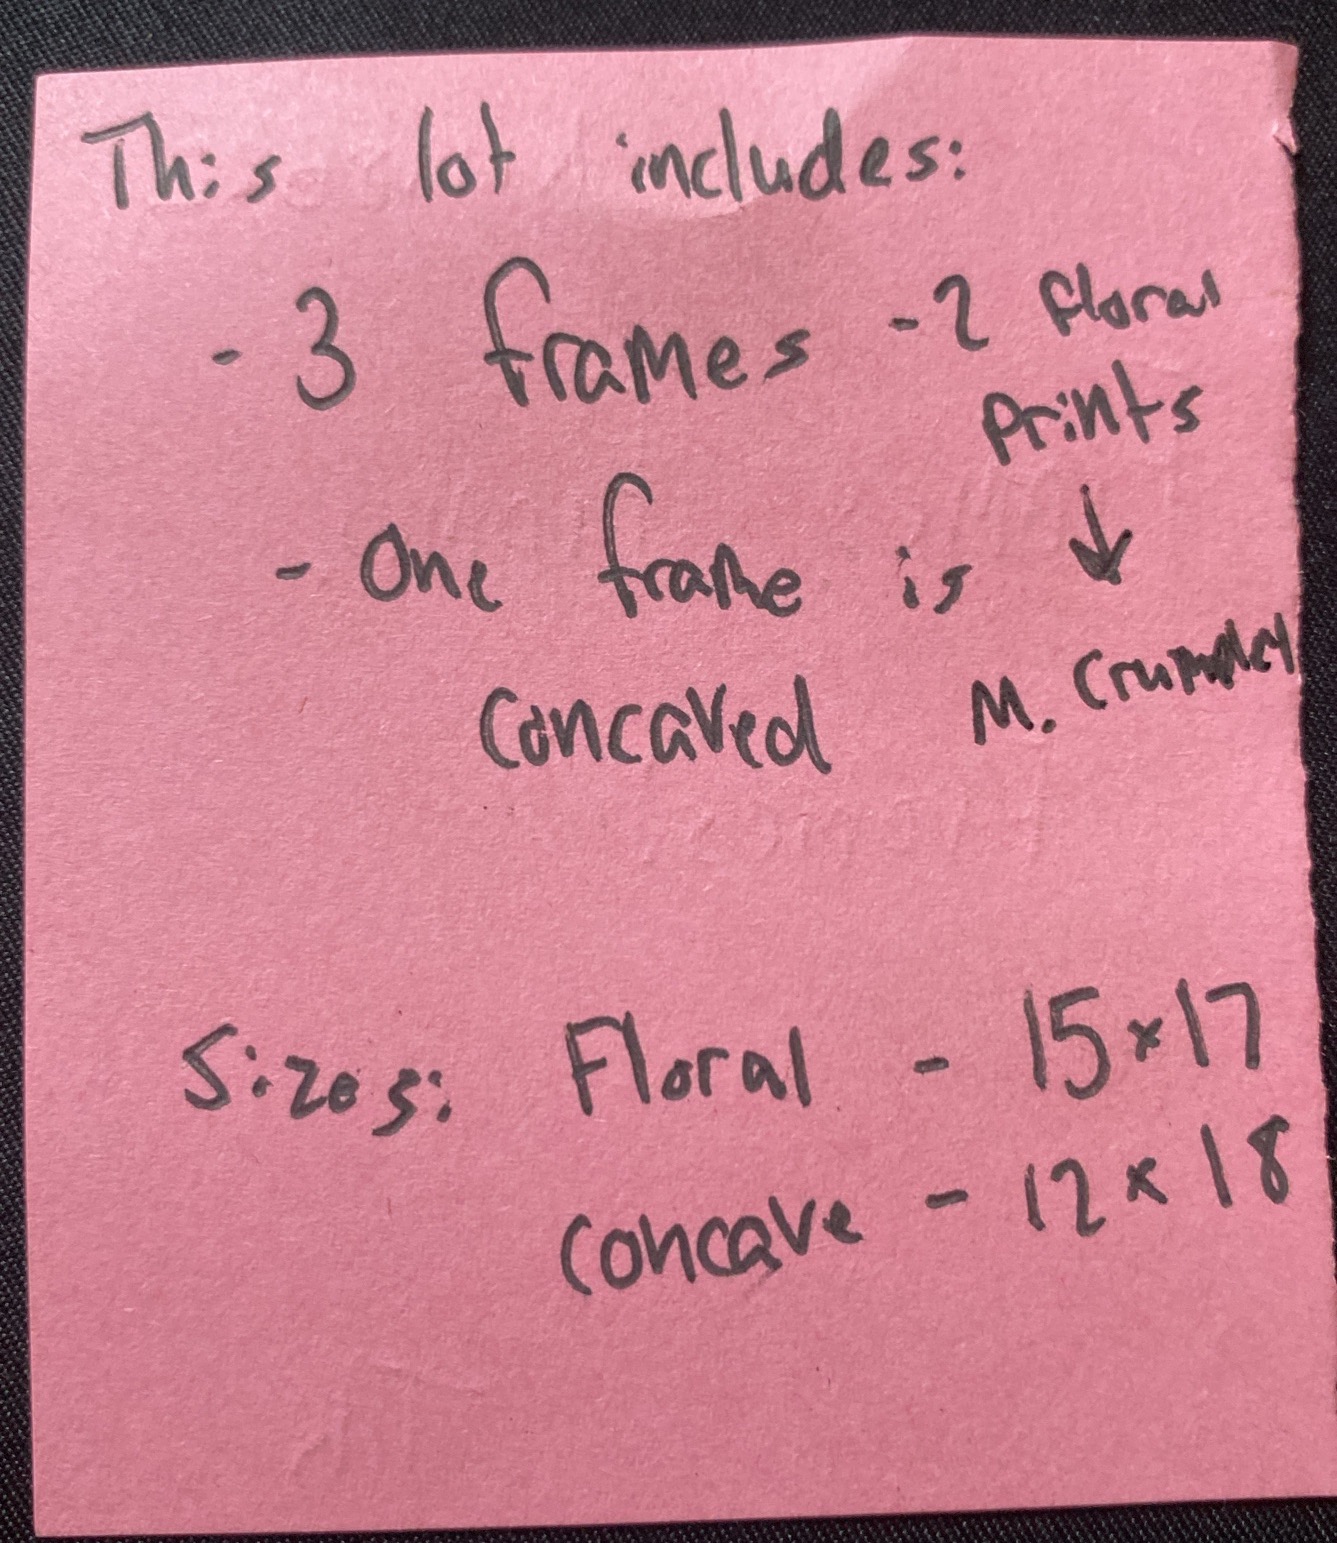 This lot includes:
- 3 frames - 2 floral
prints
- One frame is ↓
concaved M.
Sizes: Floral - 15x17
concave - 12x18